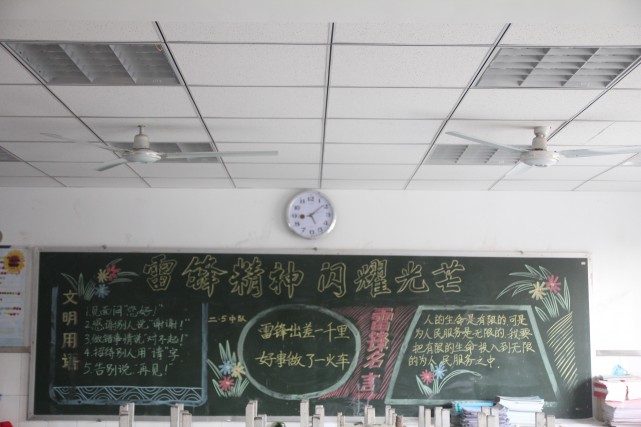 雷锋精神闪耀光芒
文明用语
1.见面问"您好！"
2.感谢别人说"谢谢！"
3.做错事情说"对不起！"
4.招待别人用"请"字
5.告别说"再见！"
二.5中队
雷锋出差一千里
好事做了一火车
雷锋名言
人的生命是有限的.可是
为人民服务是无限的.我要
把有限的生命投入到无限
的为人民服务之中.